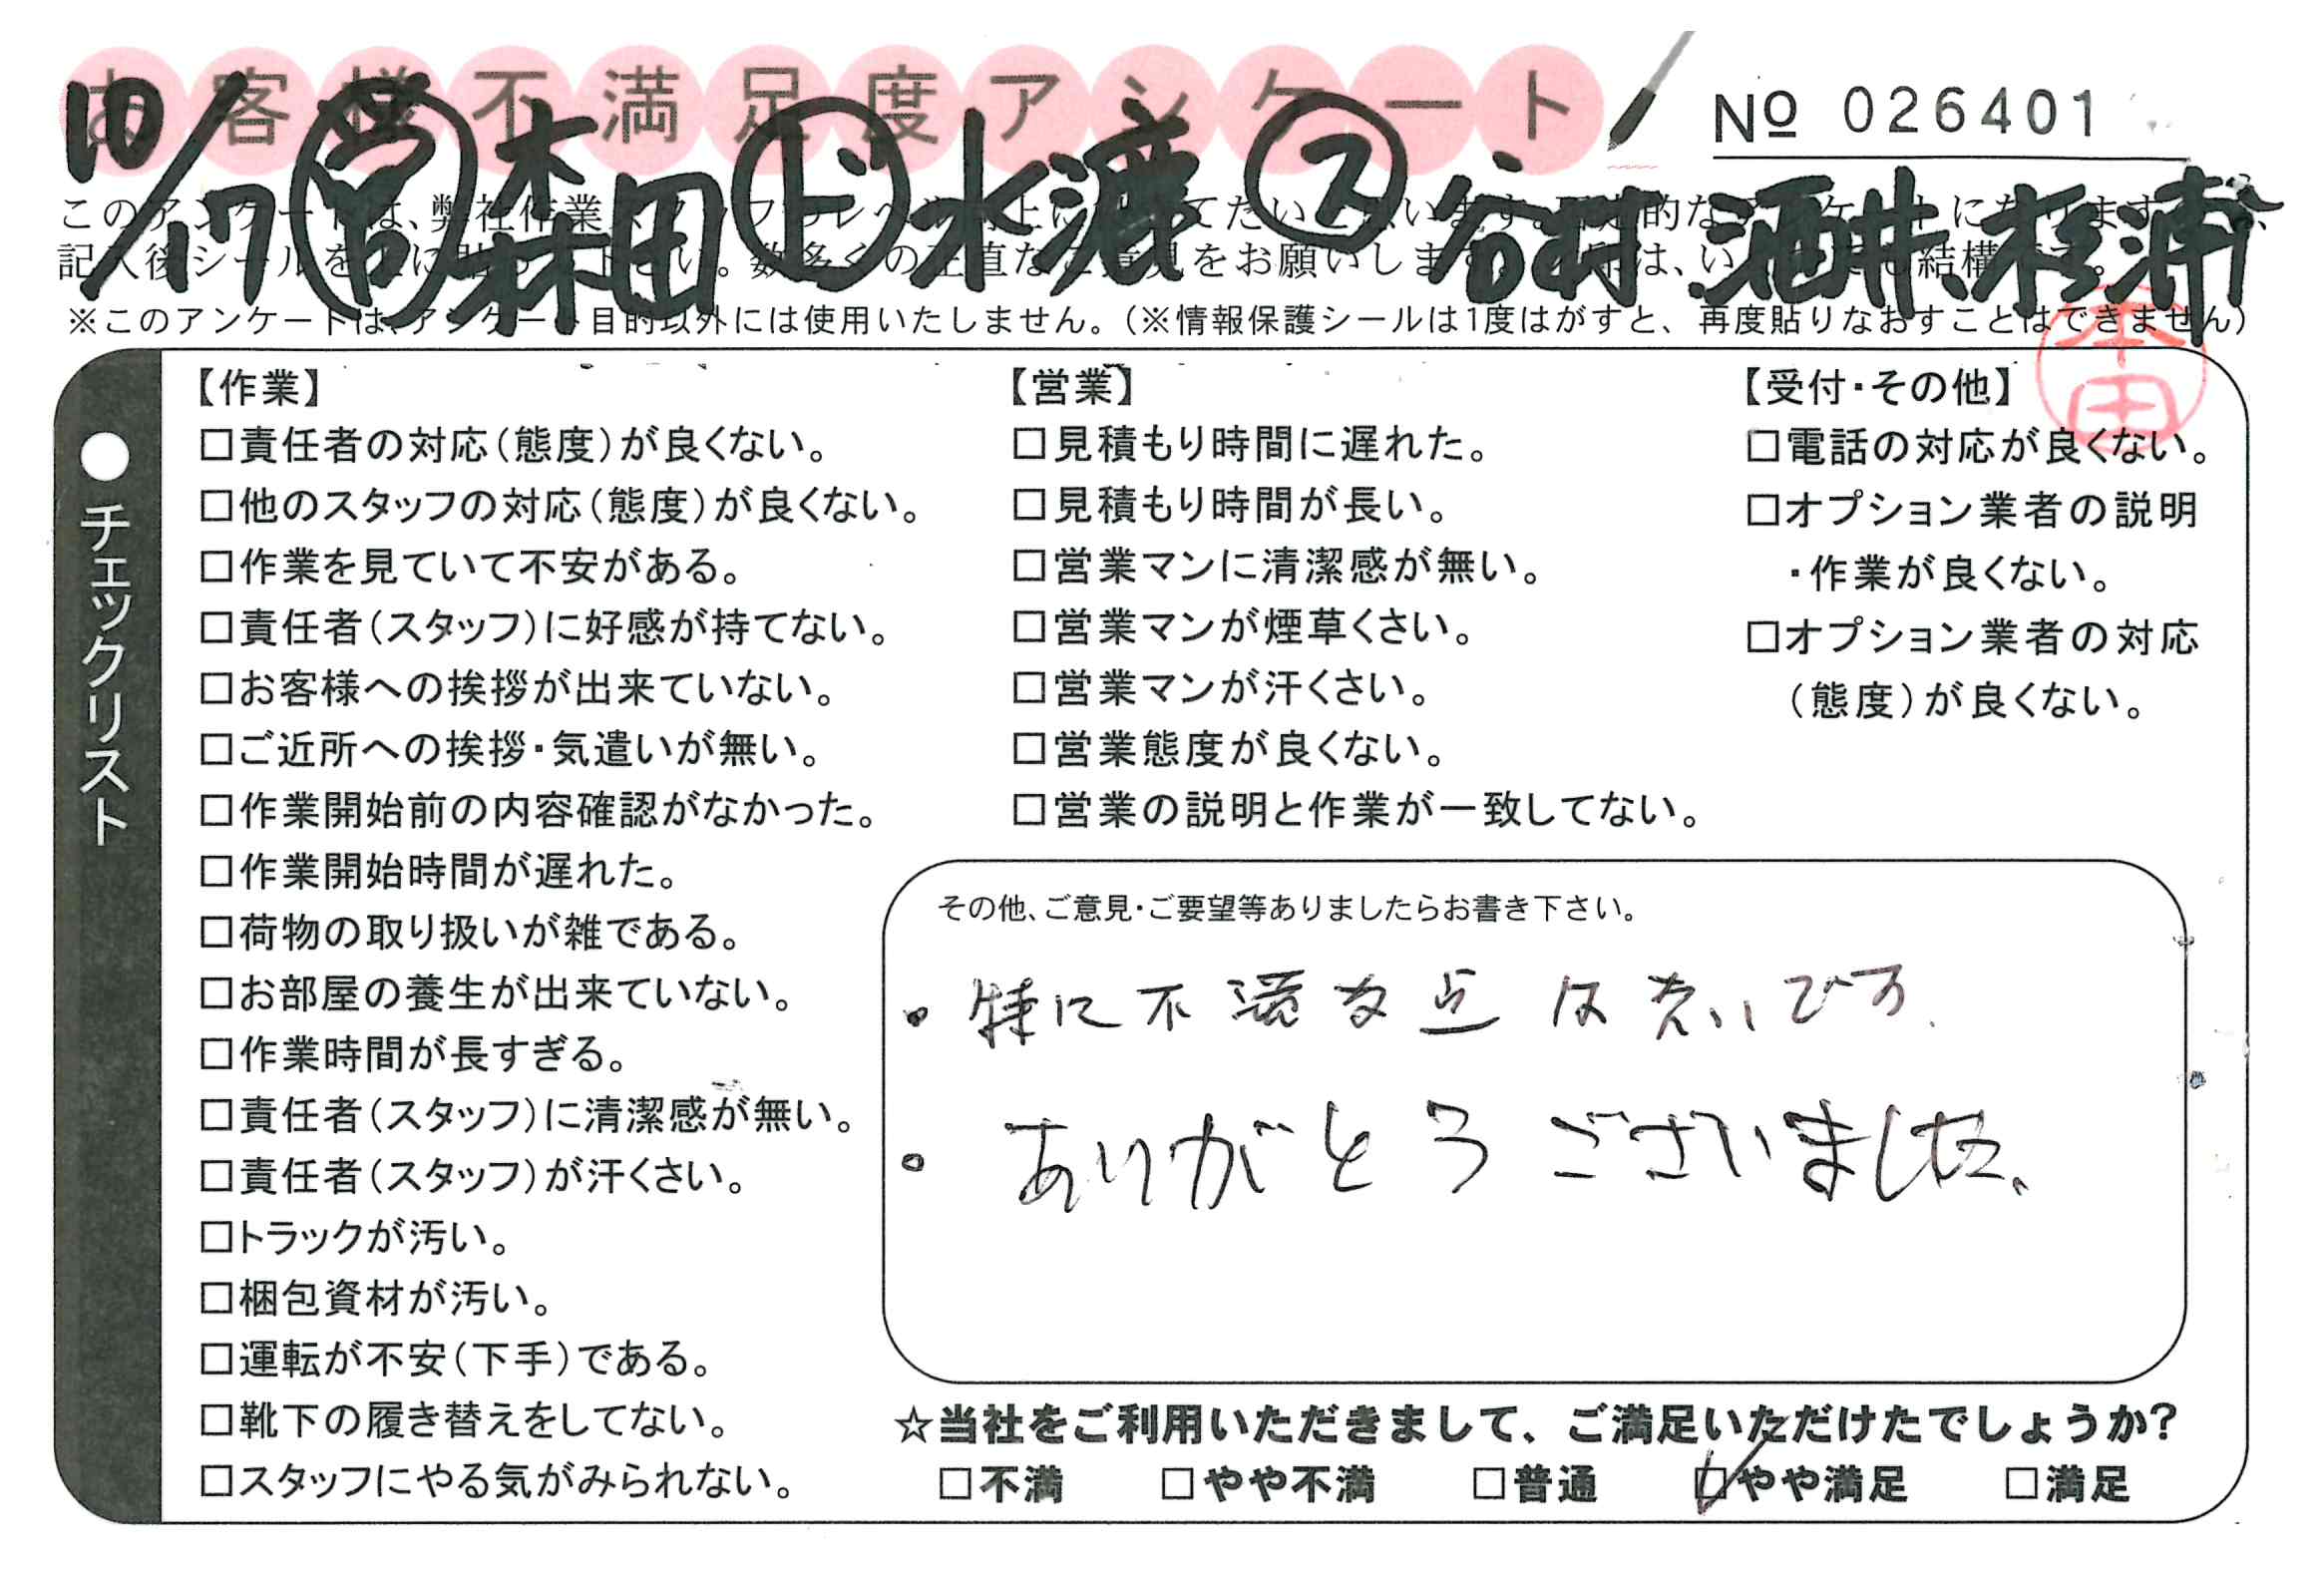 お客様不満足度アンケート
№ 026401
10/17 営 森田 ド 水漉 ス 谷村、酒井、杉浦
このアンケートは、弊社作業スタッフのレベル
記入後シールを
数多くの正直なご意見をお願いします
※このアンケートは、アンケート目的以外には使用いたしません。（※情報保護シールは1度はがすと、再度貼りなおすことはできません）
本田
●チェックリスト
【作業】
□責任者の対応（態度）が良くない。
□他のスタッフの対応（態度）が良くない。
□作業を見ていて不安がある。
□責任者（スタッフ）に好感が持てない。
□お客様への挨拶が出来ていない。
□ご近所への挨拶・気遣いが無い。
□作業開始前の内容確認がなかった。
□作業開始時間が遅れた。
□荷物の取り扱いが雑である。
□お部屋の養生が出来ていない。
□作業時間が長すぎる。
□責任者（スタッフ）に清潔感が無い。
□責任者（スタッフ）が汗くさい。
□トラックが汚い。
□梱包資材が汚い。
□運転が不安（下手）である。
□靴下の履き替えをしてない。
□スタッフにやる気がみられない。
【営業】
□見積もり時間に遅れた。
□見積もり時間が長い。
□営業マンに清潔感が無い。
□営業マンが煙草くさい。
□営業マンが汗くさい。
□営業態度が良くない。
□営業の説明と作業が一致してない。
【受付・その他】
□電話の対応が良くない。
□オプション業者の説明
・作業が良くない。
□オプション業者の対応
（態度）が良くない。
その他、ご意見・ご要望等ありましたらお書き下さい。
・特に不満な点はないです.
・ありがとうございました、
☆当社をご利用いただきまして、ご満足いただけたでしょうか?
□不満 □やや不満 □普通 ☑やや満足 □満足